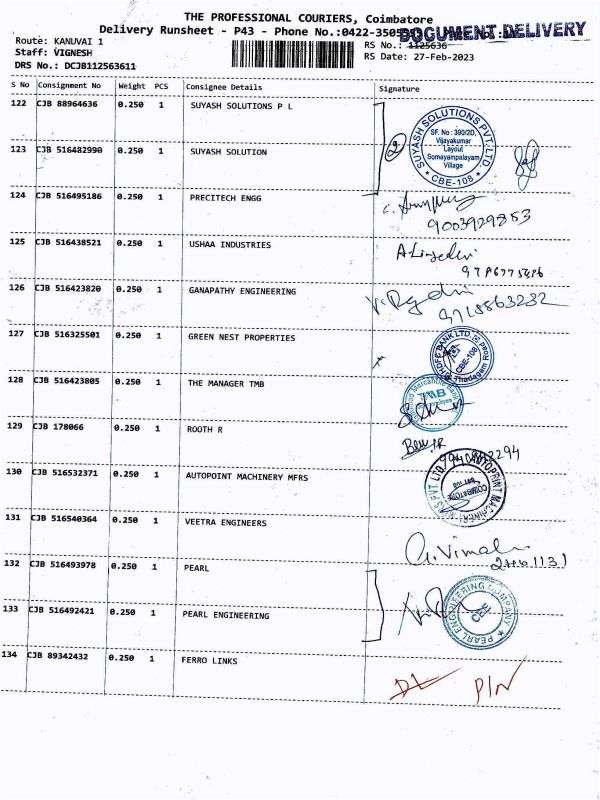 THE PROFESSIONAL COURIERS, Coimbatore
Delivery Runsheet - P43 - Phone No.:0422-3505
DOCUMENT DELIVERY
Route: KANUVAI 1
Staff: VIGNESH
DRS No.: DCJB112563611
RS No.: 1125636
RS Date: 27-Feb-2023
S No Consignment No Weight PCS Consignee Details Signature
122 CJB 88964636 0.250 1 SUYASH SOLUTIONS P L
2
SUYASH SOLUTIONS PVT. LTD
SF. No : 390/2D,
Vijayakumar
Layout
Somayampalayam
Village
* CBE-108 *
123 CJB 516482990 0.250 1 SUYASH SOLUTION
124 CJB 516495186 0.250 1 PRECITECH ENGG
9003929853
125 CJB 516438521 0.250 1 USHAA INDUSTRIES
126 CJB 516423820 0.250 1 GANAPATHY ENGINEERING
9715863232
127 CJB 516325501 0.250 1 GREEN NEST PROPERTIES
HDFC BANK LTD.
CBE-108
Thadagam Road
128 CJB 516423805 0.250 1 THE MANAGER TMB
TMB
129 CJB 178066 0.250 1 ROOTH R
130 CJB 516532371 0.250 1 AUTOPOINT MACHINERY MFRS
AUTOPRINT MACHINERY
PVT. LTD.
COIMBATORE
131 CJB 516540364 0.250 1 VEETRA ENGINEERS
G. Vimal
132 CJB 516493978 0.250 1 PEARL
PEARL ENGINEERING COMPANY
CBE
133 CJB 516492421 0.250 1 PEARL ENGINEERING
134 CJB 89342432 0.250 1 FERRO LINKS
DL PIN